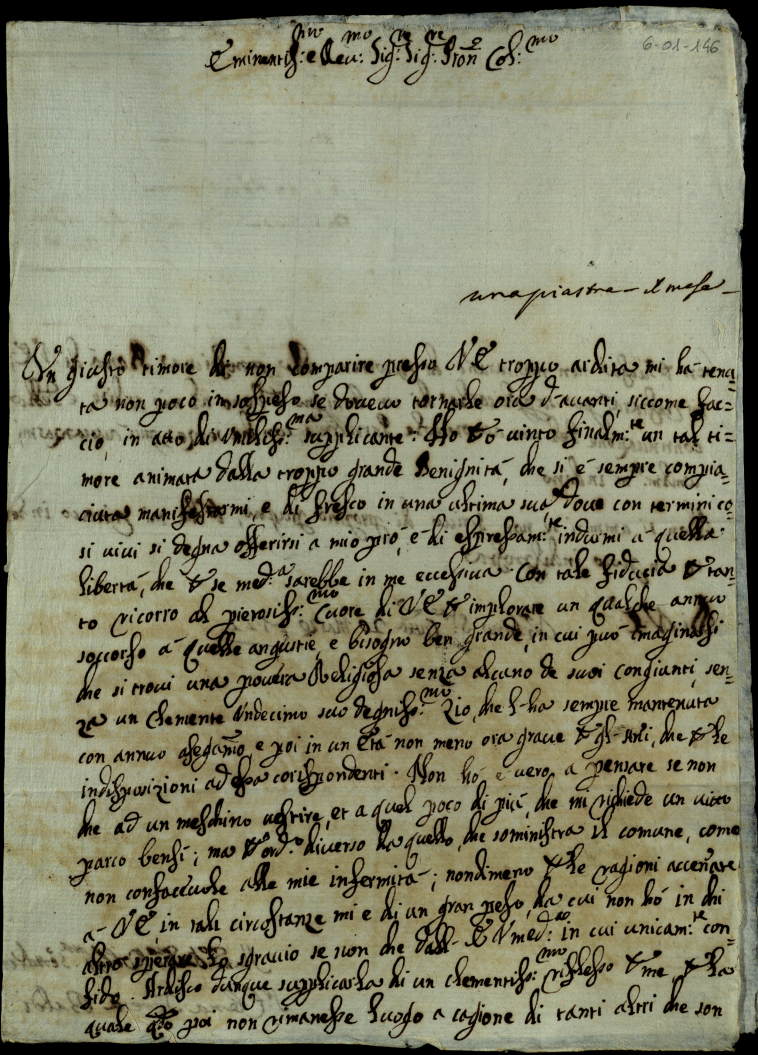 6-01-146
Eminentiss:mo e Reu:mo Sig:re Sig:re Pron̄e Col:mo
una piastra - il mese -
Un giusto timore di non comparire presso VE troppo ardita mi hà tenu=
ta non poco in sospeso se doueuo tornarle ora d'auanti, siccome fac=
cio, in atto di Umiliss:ma supplicante. Hò però uinto finalm:te un tal ti=
more animata dalla troppo grande Benignità, che si è sempre compia=
ciuta manifestarmi, e di fresco in una ultima sua, doue con termini co=
si uiui si degna offerirsi a mio prò, e di espressam:te indurmi à quella
libertà, che per se med:a sarebbe in me eccessiua. Con tale fiducia per tan=
to ricorro al pietosiss:mo Cuore di VE per implorare un qualche annuo
soccorso à quelle angustie, e bisogno ben grande, in cui può imaginarsi
che si troui una pouera Religiosa senza alcuno de suoi congiunti, sen=
za un Clemente Undecimo suo degniss:mo Zio, che l'ha sempre mantenuta
con annuo assegam̄o, e poi in un Età non meno ora graue per gl'Anni, che per le
indisposizioni ad essa corispondenti. Non hò, è uero, a pensare se non
che ad un meschino uestire, et a quel poco di più, che mi richiede un uitto
parco bensi; ma per ord:o diuerso da quello, che soministra il comune, come
non confaceuole alle mie infermità; nondimeno per le ragioni accen̄ate
à VE, in tali circostanze mi è di un gran peso, da cui non hò in chi
altro sperare lo sgrauio se non che dall' E V med:ma in cui unicam:te con=
fido. Ardisco dunque supplicarla di un clementiss:mo riflesso per me, per la
quale q:do poi non rimanesse luogo a cagione di tanti altri che son